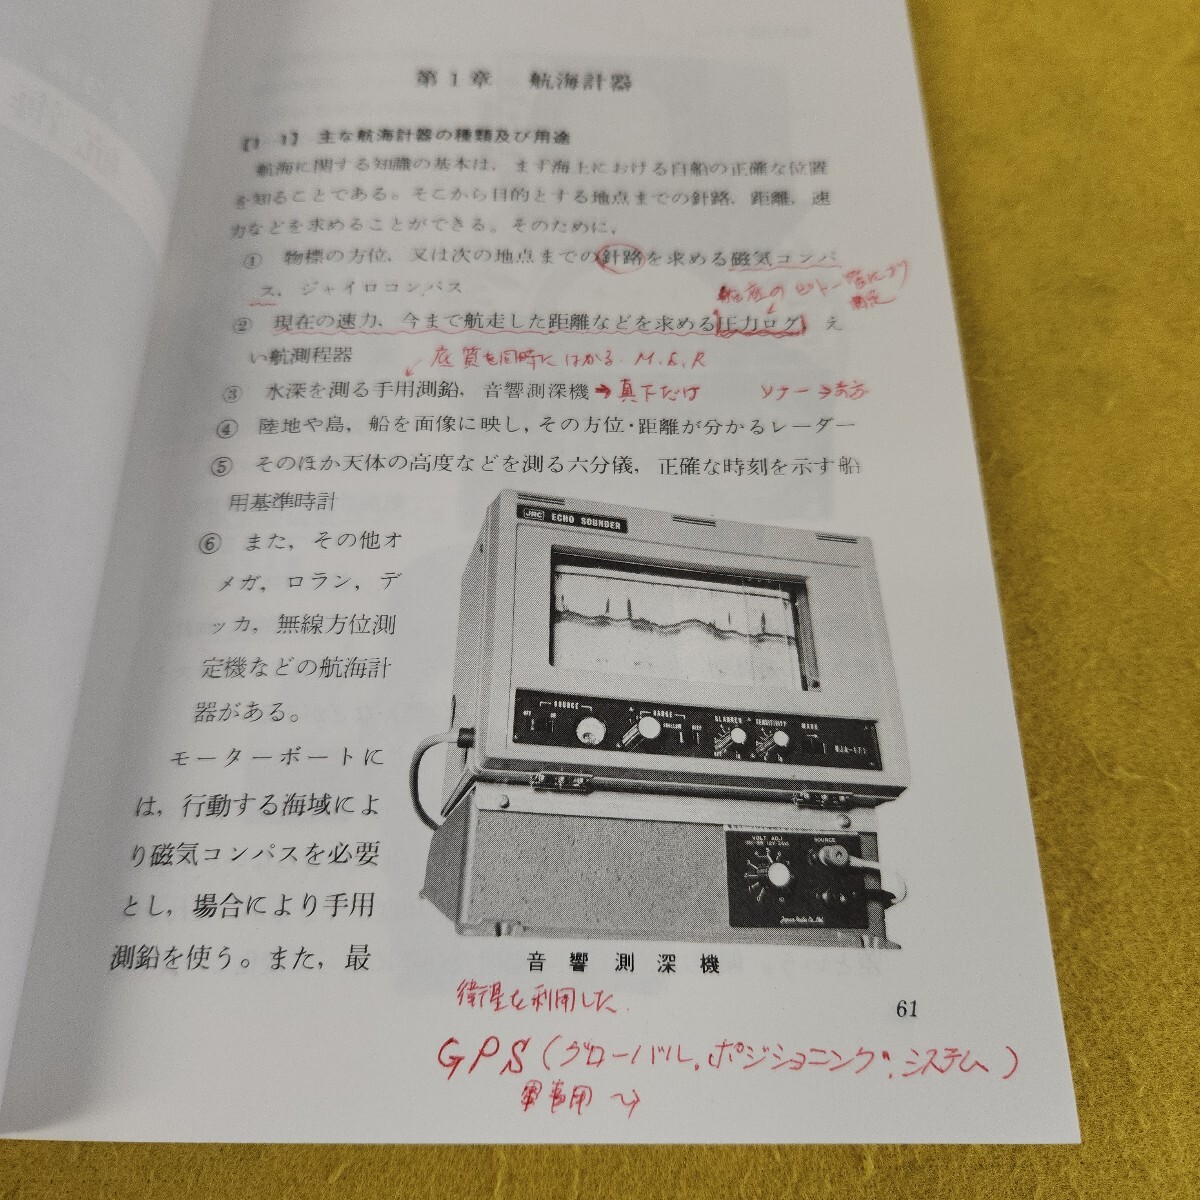 第1章 航海計器
[1-1] 主な航海計器の種類及び用途
航海に関する知識の基本は、まず海上における自船の正確な位置
を知ることである。そこから目的とする地点までの針路、距離、速
力などを求めることができる。そのために、
① 物標の方位、又は次の地点までの針路を求める磁気コンパ
ス、ジャイロコンパス
② 現在の速力、今まで航走した距離などを求める圧力ログ、え
い航測程器
底質も同時にはかる. M.S.R
③ 水深を測る手用測鉛、音響測深機→真下だけ ソナー→
④ 陸地や島、船を面像に映し、その方位・距離が分かるレーダー
⑤ そのほか天体の高度などを測る六分儀、正確な時刻を示す船
用基準時計
⑥ また、その他オ
メガ、ロラン、デ
ッカ、無線方位測
定機などの航海計
器がある。
モーターボートに
は、行動する海域によ
り磁気コンパスを必要
とし、場合により手用
測鉛を使う。また、最
JRC ECHO SOUNDER
SOURCE
OFF
RANGE
SHALLOW DEEP
SENSITIVITY
MARK
VOLT ADJ
SOURCE
Japan Radio Co., Ltd.
音響測深機
衛星を利用した
61
GPS (グローバル.ポジショニング.システム)
軍事用 →